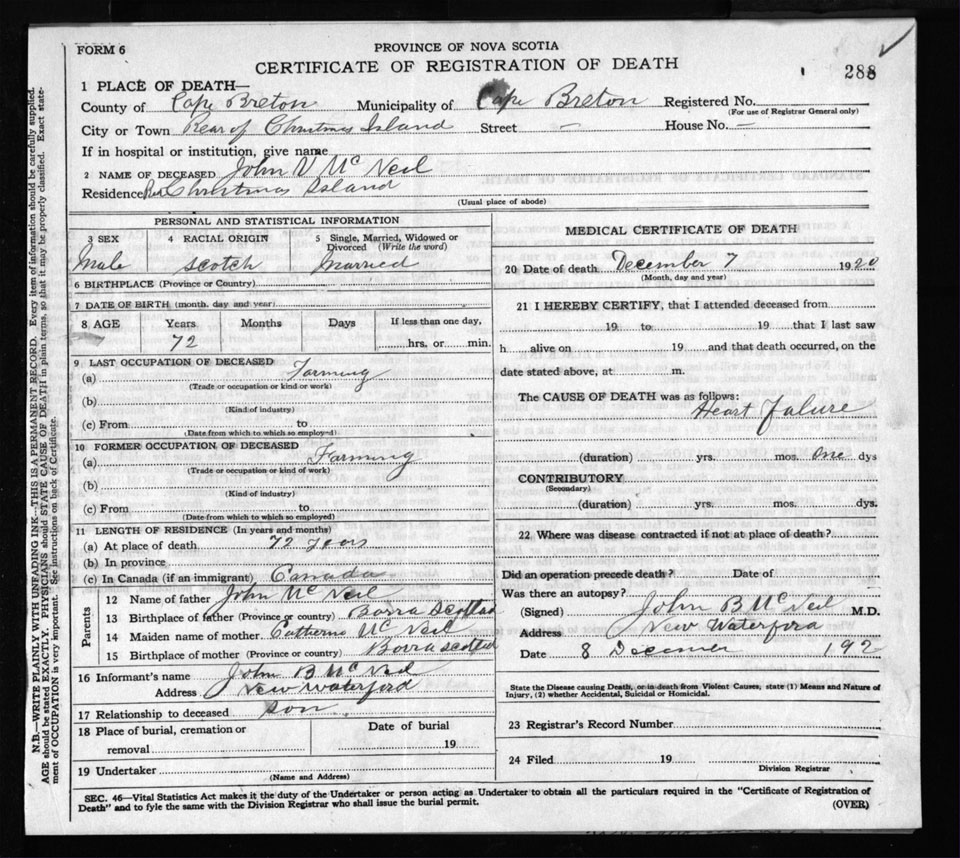 FORM 6
PROVINCE OF NOVA SCOTIA
CERTIFICATE OF REGISTRATION OF DEATH
288
1 PLACE OF DEATH—
County of Cape Breton Municipality of Cape Breton Registered No.
(For use of Registrar General only)
City or Town Rear of Christmas Island Street — House No. —
If in hospital or institution, give name
2 NAME OF DECEASED John V Mc Neil
Residence Rear Christmas Island
(Usual place of abode)
PERSONAL AND STATISTICAL INFORMATION
3 SEX 4 RACIAL ORIGIN 5 Single, Married, Widowed or Divorced (Write the word)
Male Scotch Married
6 BIRTHPLACE (Province or Country)
7 DATE OF BIRTH (month, day and year)
8 AGE Years Months Days If less than one day,
72 hrs. or min.
9 LAST OCCUPATION OF DECEASED
(a) Farming
(Trade or occupation or kind or work)
(b)
(Kind of industry)
(c) From to
(Date from which to which so employed)
10 FORMER OCCUPATION OF DECEASED
(a) Farming
(Trade or occupation or kind of work)
(b)
(Kind of industry)
(c) From to
(Date from which to which so employed)
11 LENGTH OF RESIDENCE (In years and months)
(a) At place of death 72 years
(b) In province
(c) In Canada (if an immigrant) Canada
Parents
12 Name of father John Mc Neil
13 Birthplace of father (Province or country) Borra Scotland
14 Maiden name of mother Catherine Mc Neil
15 Birthplace of mother (Province or country) Borra Scotland
16 Informant's name John B Mc Neil
Address New Waterford
17 Relationship to deceased Son
18 Place of burial, cremation or removal Date of burial
19
19 Undertaker
(Name and Address)
MEDICAL CERTIFICATE OF DEATH
20 Date of death December 7 1920
(Month, day and year)
21 I HEREBY CERTIFY, that I attended deceased from
19 to 19 that I last saw
h alive on 19 and that death occurred, on the
date stated above, at m.
The CAUSE OF DEATH was as follows:
Heart Falure
(duration) yrs. mos. One dys
CONTRIBUTORY
(Secondary)
(duration) yrs. mos. dys.
22 Where was disease contracted if not at place of death?
Did an operation precede death? Date of
Was there an autopsy?
(Signed) John B Mc Neil M.D.
Address New Waterford
Date 8 December 192
State the Disease causing Death, or in death from Violent Causes, state (1) Means and Nature of
Injury, (2) whether Accidental, Suicidal or Homicidal.
23 Registrar's Record Number
24 Filed 19
Division Registrar
SEC. 46—Vital Statistics Act makes it the duty of the Undertaker or person acting as Undertaker to obtain all the particulars required in the "Certificate of Registration of
Death" and to fyle the same with the Division Registrar who shall issue the burial permit. (OVER)
N.B.—WRITE PLAINLY WITH UNFADING INK—THIS IS A PERMANENT RECORD. Every item of information should be carefully supplied.
AGE should be stated EXACTLY. PHYSICIANS should STATE CAUSE OF DEATH in plain terms, so that it may be properly classified. Exact statement
of OCCUPATION is very important. See instructions on back of Certificate.